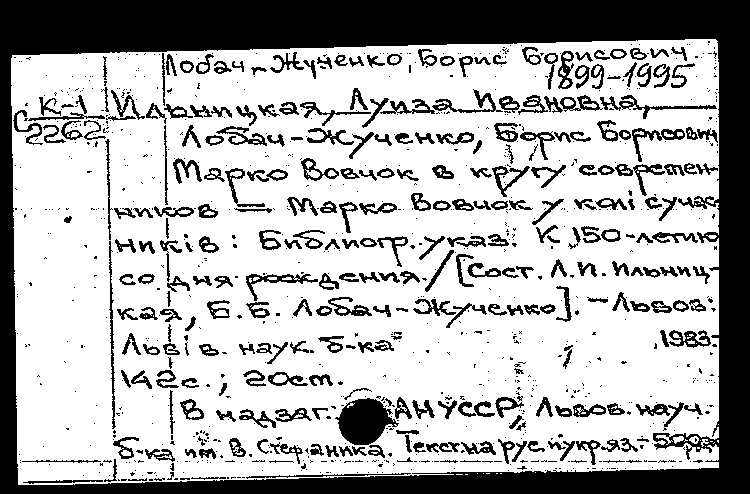 Лобач-Жученко, Борис Борисович
1899-1995
К-1 Ильницкая, Луиза Ивановна,
С2262 Лобач-Жученко, Борис Борисович
Марко Вовчок в кругу современ-
ников = Марко Вовчок у колі сучас
ників: Библиогр. указ. К 150-летию
со дня рождения. / [Сост. Л.И. Ильниц-
кая, Б.Б. Лобач-Жученко]. - Львов:
Львів. наук. б-ка 1983.
142с.; 20см.
В надзаг.: АН УССР, Львов. науч.
б-ка им. В. Стефаника. Текст на рус. и укр. яз. -